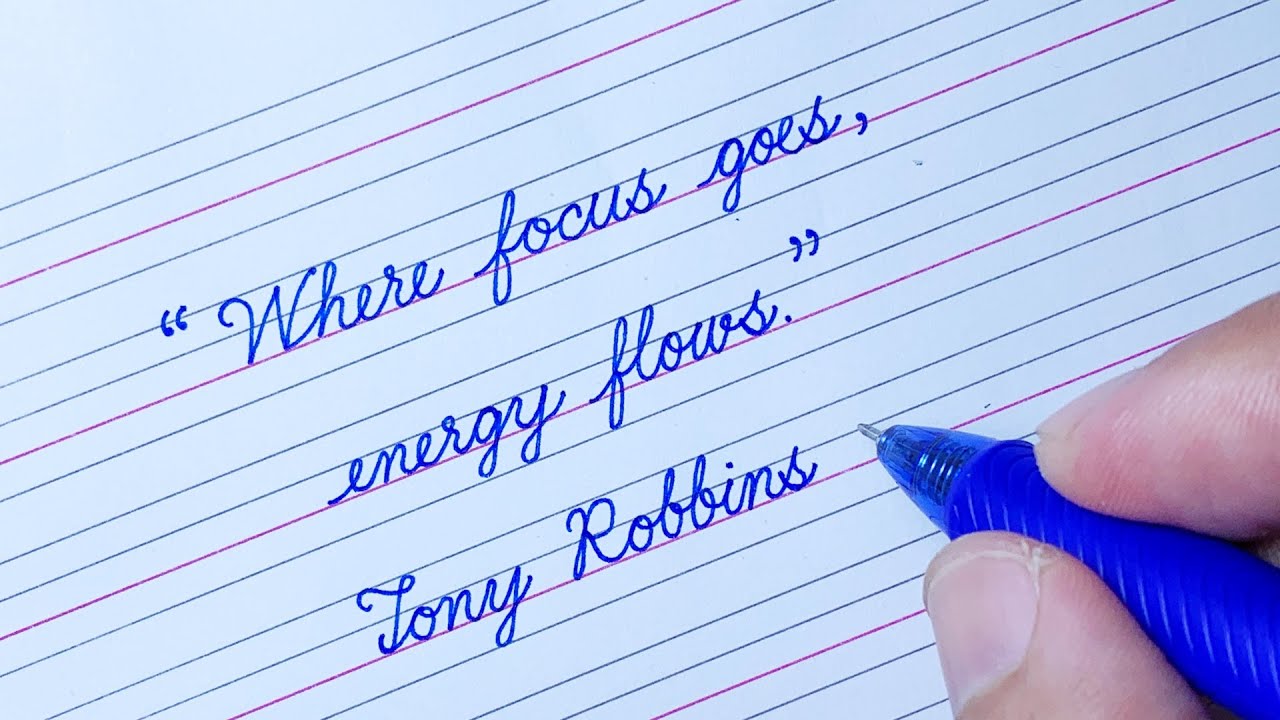 “Where focus goes,
energy flows.”
Tony Robbins